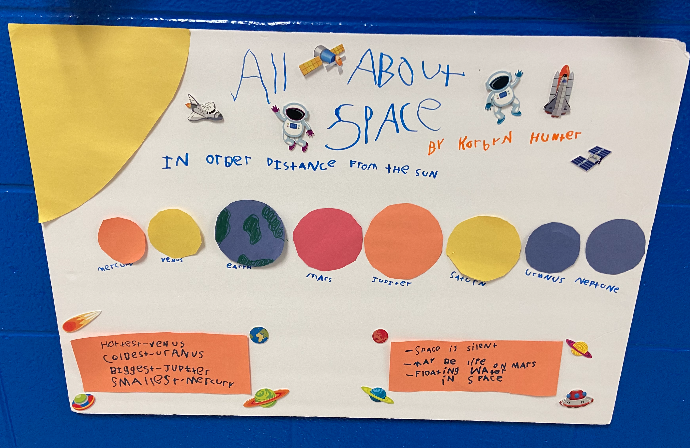 All ABOUt
SPACE
BY KorbYN HUNTER
IN OrDEr DISTANCE From tHE SUN
mercury
venus
earth
mars
Jupiter
Saturn
UrANUS
NePTUNE
HOTTEST-VENUS
COLDEST-UrANUS
BIGGEST-JUPITEr
SMALLEST-MErCURY
-SPACE IS SILENT
-MAY BE lIFE ON MArS
-FLOATING WATEr
IN SPACE